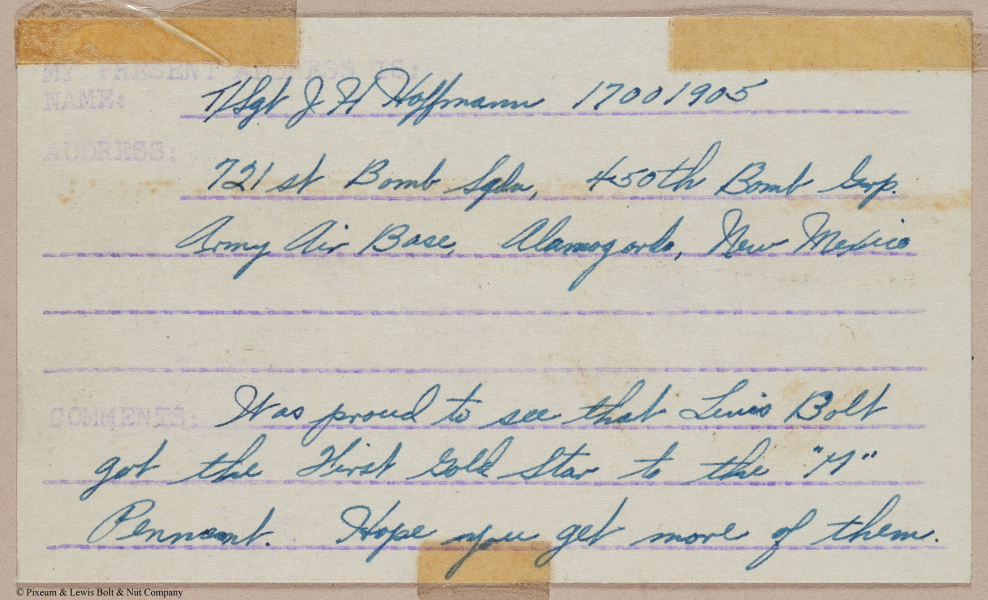 MY PRESENT ADDRESS IS:
NAME: T/Sgt J H Hoffmann 17001905
ADDRESS:
721 st Bomb Sqdn, 450th Bomb Grp.
Army Air Base, Alamogordo, New Mexico
COMMENTS: Was proud to see that Lewis Bolt
got the First Gold Star to the "M"
Pennant. Hope you get more of them.
© Pixeum & Lewis Bolt & Nut Company